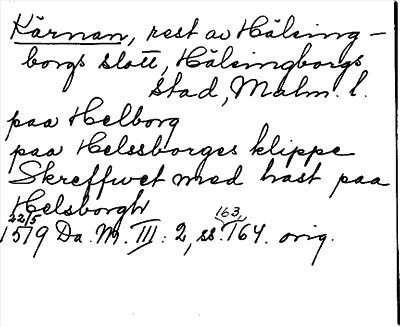 Kärnan, rest av Hälsing-
borgs slott, Hälsingborgs
stad, Malm. l.
paa Helborg
paa Helssborges klippe
Skreffwet med hast paa
Helsborgh
22/5 1519 Da. M. III: 2, ss. 163, 164. orig.